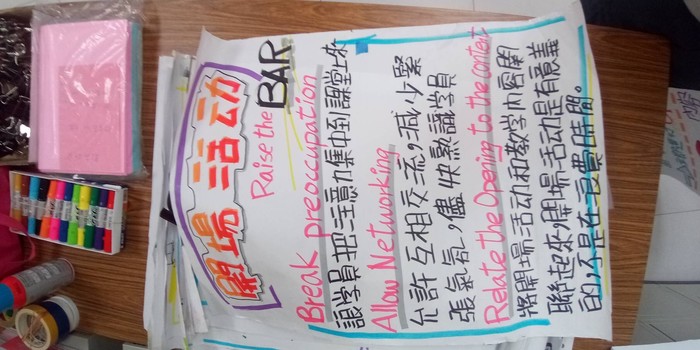 開場活动
Raise the BAR
Break preoccupation
讓学員把注意力集中到課堂上來
Allow Networking
允許互相交流,減少緊
張氣氛,儘快熟識学員
Relate the Opening to the content
將開場活动和教学内容関
聯起來,開場活动是有意義
的,不是在浪費時間。